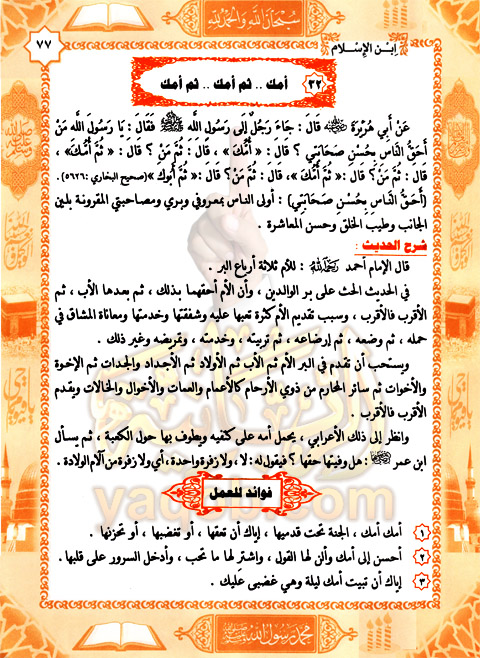 سبحان الله والحمد لله
٧٧
ابن الإسلام
٣٢ أمك .. ثم أمك .. ثم أمك
عَنْ أَبِي هُرَيْرَةَ رضي الله عنه قَالَ : جَاءَ رَجُلٌ إِلَى رَسُولِ اللَّهِ ﷺ فَقَالَ : يَا رَسُولَ اللَّهِ مَنْ
أَحَقُّ النَّاسِ بِحُسْنِ صَحَابَتِي ؟ قَالَ : « أُمُّكَ » ، قَالَ : ثُمَّ مَنْ ؟ قَالَ : « ثُمَّ أُمُّكَ » ،
قَالَ : ثُمَّ مَنْ ؟ قَالَ : « ثُمَّ أُمُّكَ » ، قَالَ : ثُمَّ مَنْ؟ قَالَ : « ثُمَّ أَبُوكَ »(صحيح البخاري :٥٦٢٦)
(أَحَقُّ النَّاسِ بِحُسْنِ صَحَابَتِي) : أولى الناس بمعروفي وبري ومصاحبتي المقرونة بلين
الجانب وطيب الخلق وحسن المعاشرة .
شرح الحديث :
قال الإمام أحمد رحمه الله : للأم ثلاثة أرباع البر .
في الحديث الحث على بر الوالدين ، وأن الأم أحقهما بذلك ، ثم بعدها الأب ، ثم
الأقرب فالأقرب ، وسبب تقديم الأم كثرة تعبها عليه وشفقتها وخدمتها ومعاناة المشاق في
حمله ، ثم وضعه ، ثم إرضاعه ، ثم تربيته ، وخدمته ، وتمريضه وغير ذلك .
ويستحب أن تقدم في البر الأم ثم الأب ثم الأولاد ثم الأجداد والجدات ثم الإخوة
والأخوات ثم سائر المحارم من ذوي الأرحام كالأعمام والعمات والأخوال والخالات ويقدم
الأقرب فالأقرب .
وانظر إلى ذلك الأعرابي ، يحمل أمه على كتفيه ويطوف بها حول الكعبة ، ثم يسأل
ابن عمر رضي الله عنهما : هل وفيتها حقها ؟ فيقول له : لا ، ولا زفرة واحدة ؛ أي ولا زفرة من آلام الولادة .
فوائد للعمل
١ أمك أمك ، الجنة تحت قدميها ، إياك أن تعقها ، أو تغضبها ، أو تحزنها .
٢ أحسن إلى أمك وألن لها القول ، واشتر لها ما تحب ، وأدخل السرور على قلبها .
٣ إياك أن تبيت أمك ليلة وهي غضبى عليك .
محمد رسول الله